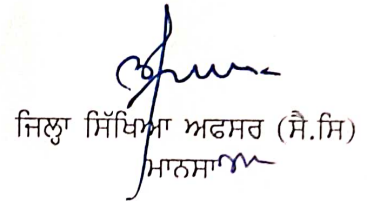 ਜਿਲ੍ਹਾ ਸਿੱਖਿਆ ਅਫਸਰ (ਸੈ.ਸਿ)
ਮਾਨਸਾ